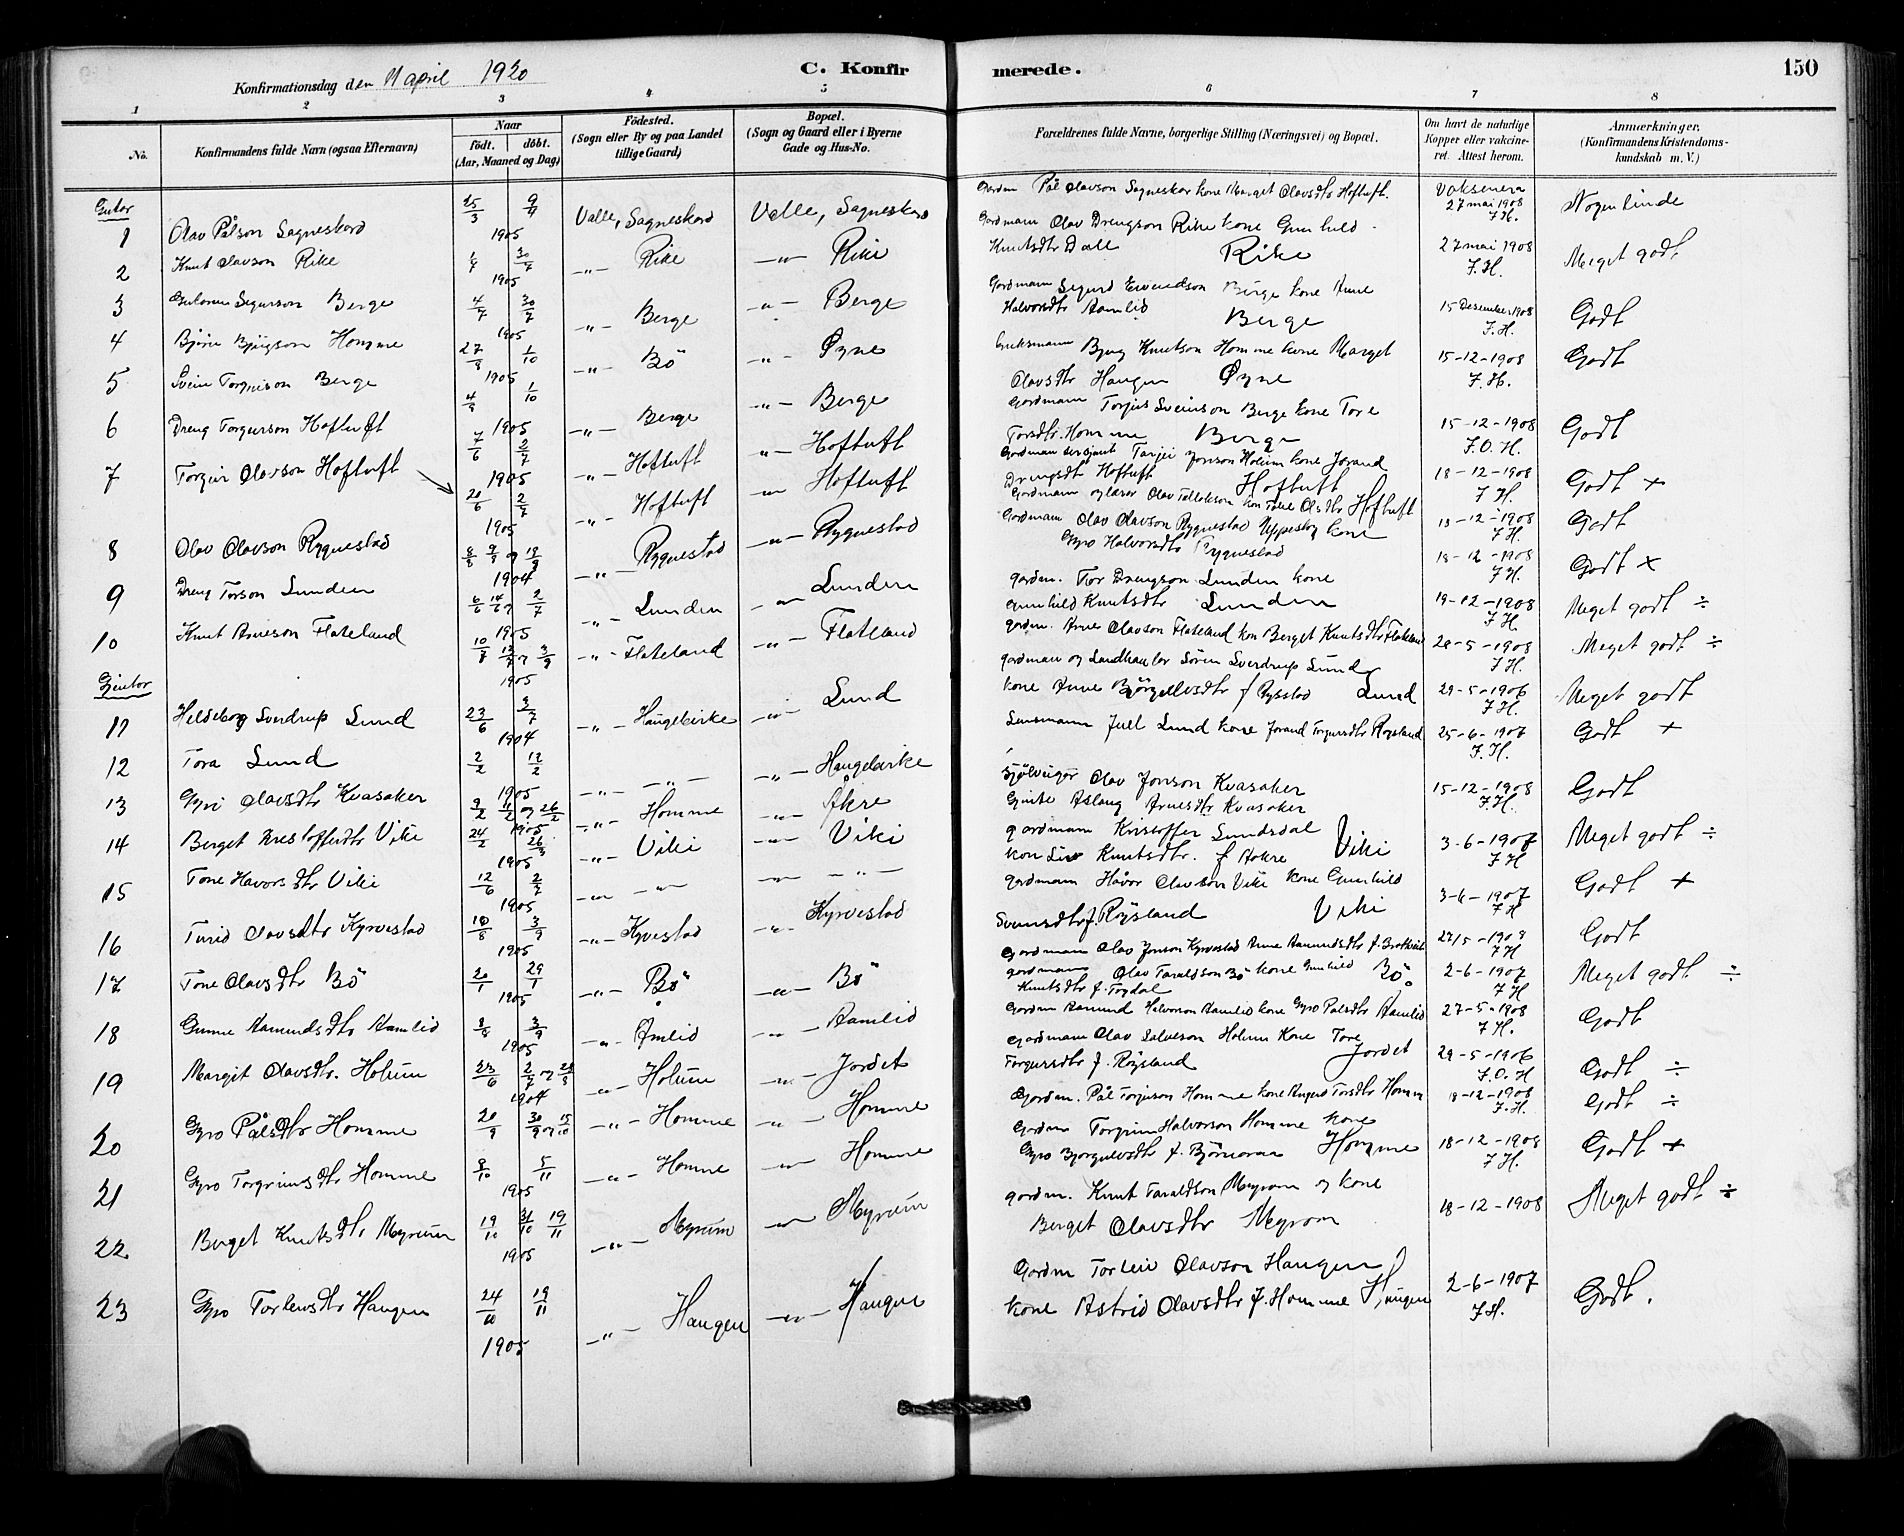 Konfirmationsdag den 11 april 1920
C. Konfirmerede.
150
1 2 3 4 5 6 7 8
No.
Konfirmandens fulde Navn (ogsaa Efternavn)
Naar
født. døbt.
(Aar, Maaned og Dag)
Födested.
(Sogn eller By og paa Landet
tillige Gaard)
Bopæl.
(Sogn og Gaard eller i Byerne
Gade og Hus-No.
Forældrenes fulde Navne, borgerlige Stilling (Næringsvei) og Bopæl.
Om havt de naturlige
Kopper eller vakcine-
ret. Attest herom.
Anmærkninger.
(Konfirmandens Kristendoms-
kundskab m. V.)
Gutar
1 Olav Pålson Sagneskard 25/3 9/4 1905 Valle, Sagneskard Valle, Sagneskard Gardm Pål Olavson Sagneskar kone Marget Olavsdtr Hoftuft. 27 mai 1908 J.H. Nogenlinde
2 Knut Olavson Rike 30/7 1905 -"- Rike -"- Rike Gardmann Olav Drengson Rike kone Gunhild Knutsdtr Dale Rike 27 mai 1908 J.H. Meget godt
3 Berge 4/7 30/7 1905 -"- Berge -"- Berge Gardmann Sigurd Berge kone Anne Halvorsdtr Aamlid Berge 15 Desember 1908 J.H. Godt
4 Bjørn Bjugson Homme 27/8 1/10 1905 -"- Bö -"- Øyne Bjug Knutson Homme kone Marget Olavsdtr Haugen Øyne 15-12-1908 J.H. Godt
5 Svein Torgrieson Berge 4/9 1/10 1905 -"- Berge -"- Berge Gordmann Torjus Sveinson Berge kone Tore Torsdtr. Homme Berge 15-12-1908 J.O.H. Godt
6 Dreng Hoftuft 7/6 2/7 1905 -"- Hoftuft -"- Hoftuft Gordman Tarjei Jonson Holum kone Jorand Drengsdt Hoftuft Hoftuft 18-12-1908 J H. Godt +
7 Torgeir Olavson Hoftuft 20/6 2/7 1905 -"- Hoftuft -"- Hoftuft Gordmann og lærar Olav kon Tone Olsdtr Hoftuft 18-12-1908 J H. Godt
8 Olav Olavson Rygnestad 8/8 9/9 og 18/9 1904 -"- Rygnestad -"- Rygnestad Gordmann Olav Olavson Rygnestad kone Gyro Halvorsdtr Rygnestad 18-12-1908 J H. Godt +
9 Dreng Torson Lunden 6/6 14/6 og 2/7 1905 -"- Lunden -"- Lunden gardm. Tor Drengson Lunden kone Gunhild Knutsdtr Lunden 19-12-1908 J H. Meget godt ÷
10 Knut Arneson Flateland 10/7 13/7 og 3/9 1905 -"- Flateland -"- Flateland gardm. Arne Olavson Flateland kon Berget Knutsdtr Flateland 20-5-1908 J H. Meget godt ÷
Gjentor
11 Heldeborg Sverdrup Lund 23/6 3/7 1904 -"- Haugekirke -"- Lund gardman og Landhanler Søren Sverdrup Lund kone Anne Björgulvsdtr f Rysstad Lund 29-5-1906 J H. Meget godt
12 Tora Lund 2/2 12/2 1905 -"- -"- Haugekirke Lensmann Juel Lund kone Jorand Torgeirsdtr Røysland 25-6-1907 J.H. Godt +
13 Gyri Olavsdtr Kvasaker 9/2 11/2 og 26/2 1905 -"- Homme -"- Åkre Sjølveigar Olav Jonson Kvasaker Aslaug Arnesdtr Kvasaker 15-12-1908 J.H. Godt
14 Berget Kristofferdtr Viki 24/2 26/3 1905 -"- Viki -"- Viki gardmann Kristoffer Lundsdal kon Liv Knutsdtr. f Aakre Viki 3-6-1907 J H Meget godt ÷
15 Tone Havorsdtr Viki 12/6 2/7 1905 -"- -"- -"- -"- gardmann Håvor Olavson Viki kone Gunhild Svensdtr f. Røysland Viki 3-6-1907 J H Godt +
16 Turid Olavsdtr Kyrvestad 18/8 3/9 1905 -"- Kyvestad -"- Kyrvestad Gordmann Olav Jonson Kyrvestad Anne Aamundsdtr f. J H Godt
17 Tone Olavsdtr Bö 20/1 29/1 1905 -"- Bö -"- Bö gordmann Olav Taraldson Bö kone Gunhild Knutsdtr f. Bö 2-6-1907 J H Meget godt ÷
18 Gunne Aamundsdtr Aamlid 3/9 1905 -"- Åmlid -"- Aamlid Gordm Aamund Halvorson Aamlid kone Gyro Palsdtr Aamlid 27-5-1908 J H. Godt
19 Margit Olavsdtr. Holum 23/6 2/7 og 1904 -"- Holum -"- Jordet gordmann Olav Salveson Holum Kone Tore Torgersdtr f. Røysland Jordet 29-5-1906 J.O.H Godt ÷
20 Gyro Pålsdtr Homme 20/9 30/9 og 15/10 -"- Homme -"- Homme Gordm. Pål Torjuson Homme kone Torsdtr Homm 18-12-1908 J.H. Godt ÷
21 Gyro Torgrimsdtr Homme 9/10 5/11 1905 -"- Homme -"- Homme Gordm Torgrim Halvorson Homme Kone Gyro Bjorgulvsdtr f. Björnaraa Homme 18-12-1908 J H. Godt +
22 Berget Knutsdtr Myrum 19/10 31/10 19/11 1905 -"- Myrum -"- Myrum gordm. Knut Taraldson Myrom og kone Berget Olavsdtr Myrom 18-12-1908 Meget godt ÷
23 Gyro Torleivsdtr Haugen 24/10 19/11 1905 -"- Haugen -"- Haugen Gordm Torleiv Olavson Haugen kone Astrid Olavsdtr f. Homme Haugen 2-6-1907 J H. Godt.